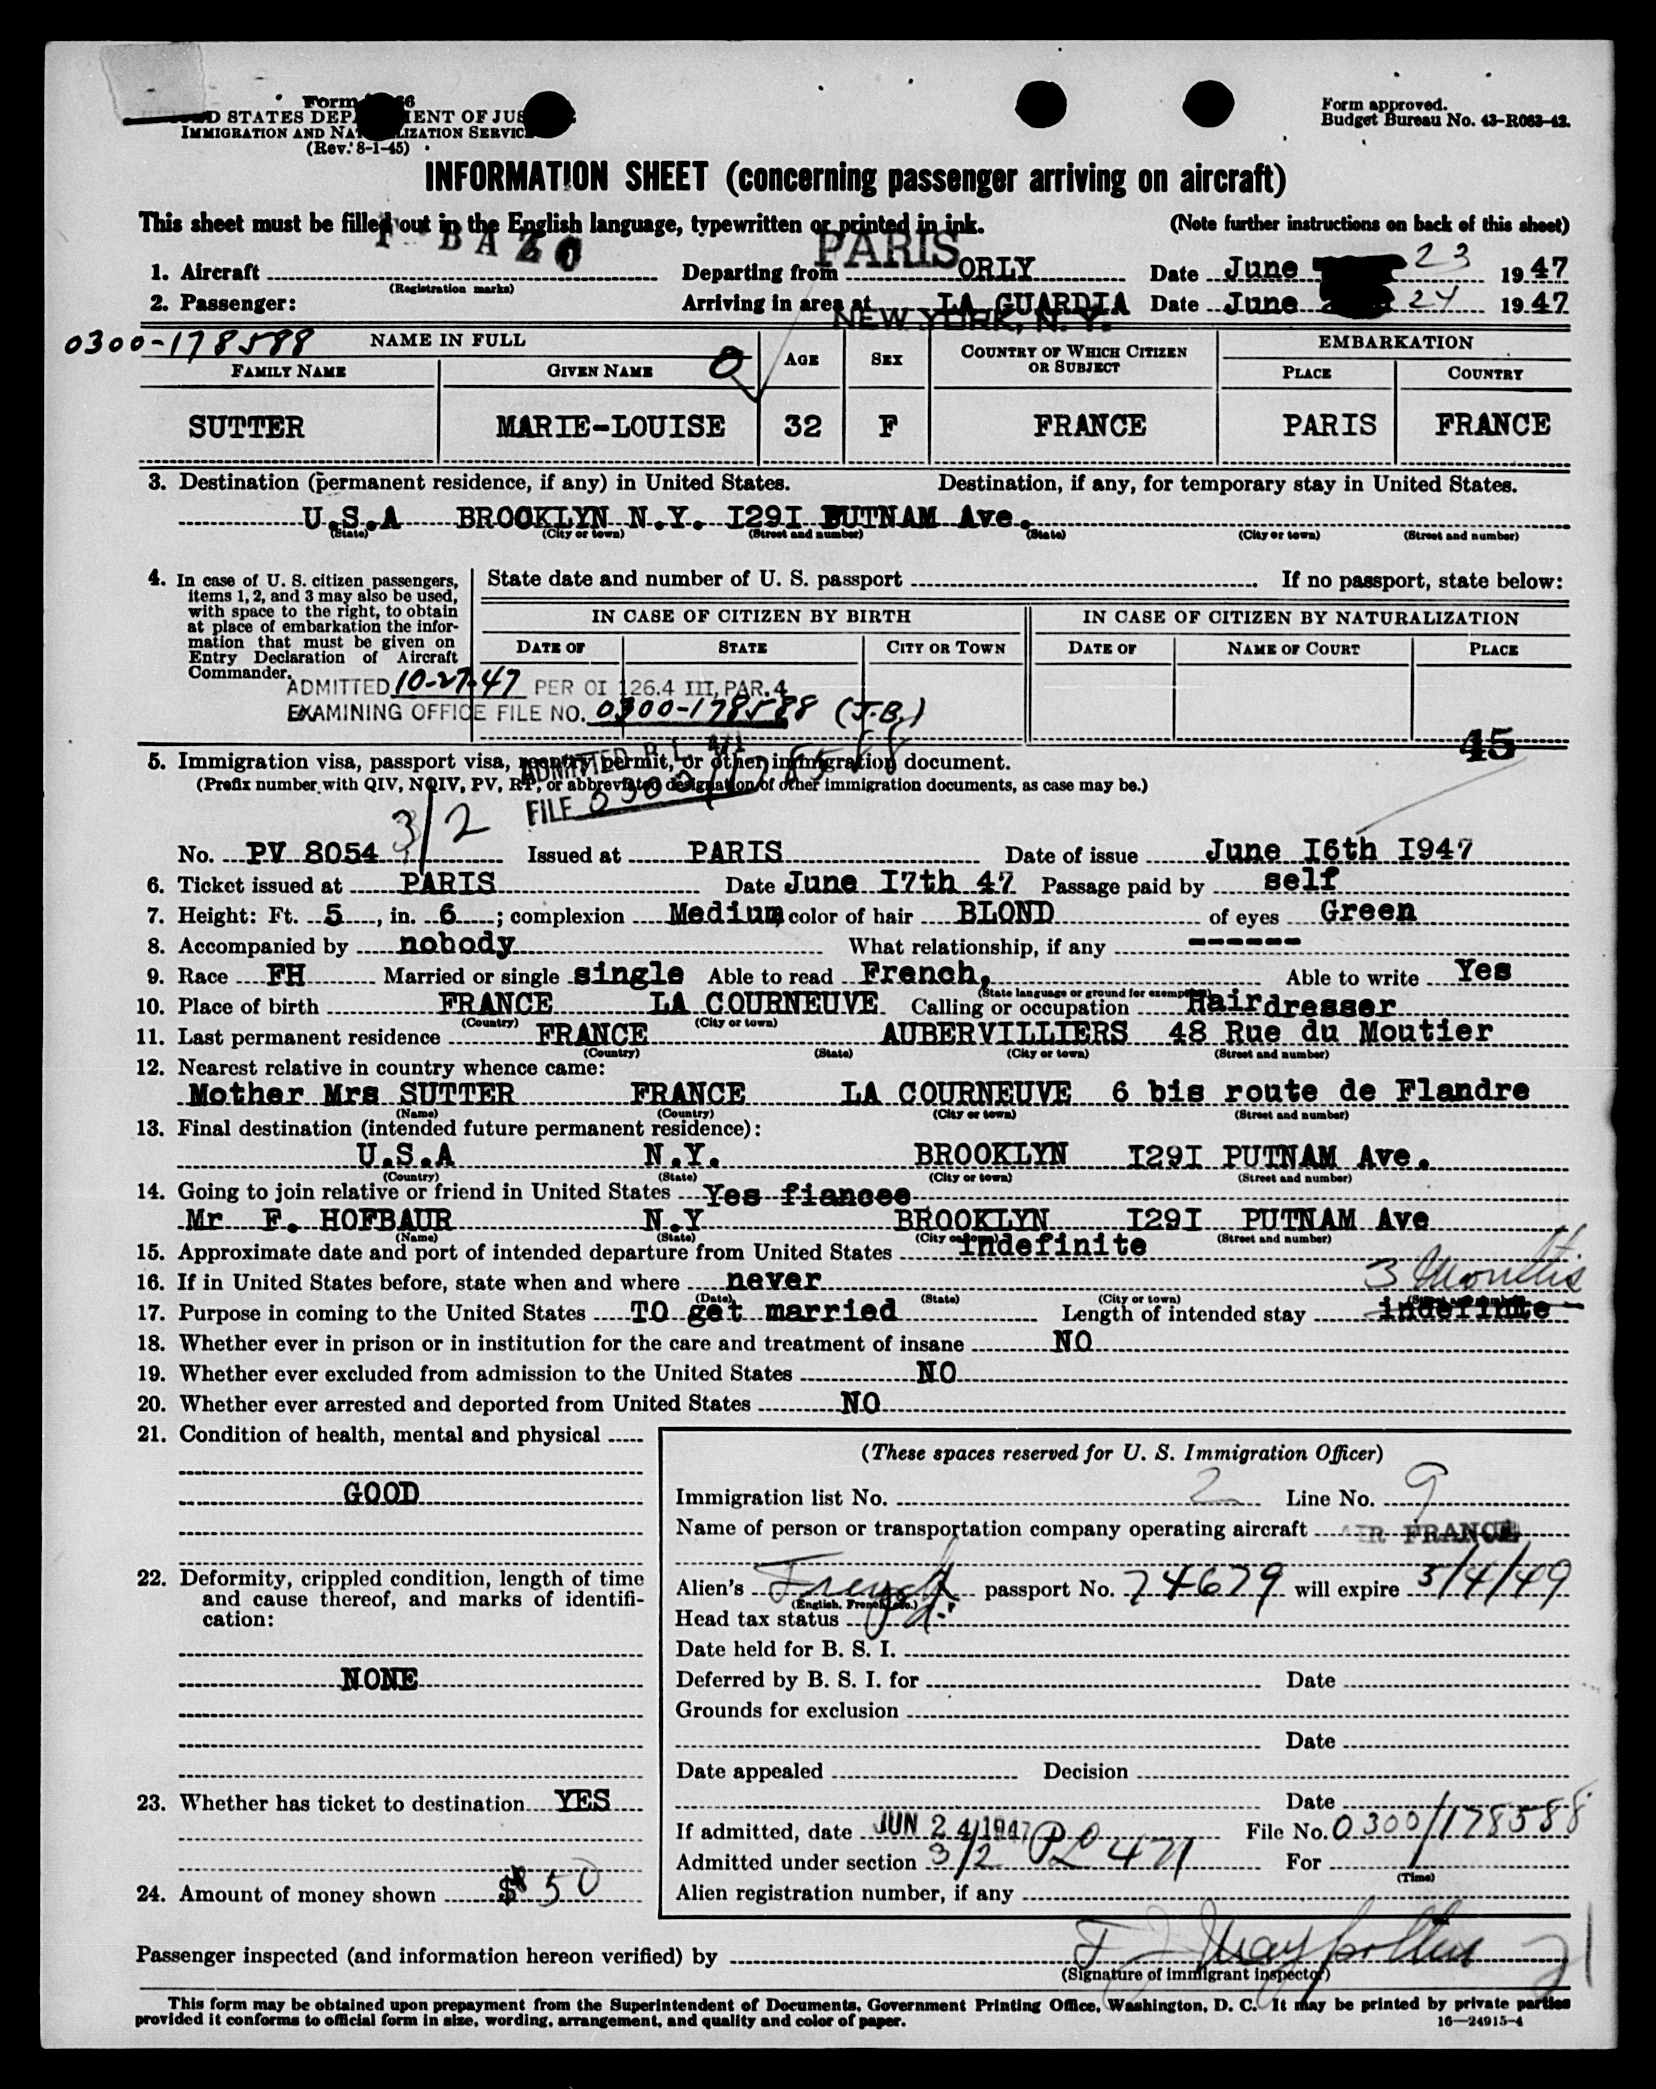 Form
STATES DEP MENT OF JUS
IMMIGRATION AND NA IZATION SERVIC
(Rev. 8-1-45)
Form approved.
Budget Bureau No. 43-R063-42.
INFORMATION SHEET (concerning passenger arriving on aircraft)
This sheet must be filled out in the English language, typewritten or printed in ink. (Note further instructions on back of this sheet)
F-BAZO PARIS
1. Aircraft Departing from ORLY Date June 23 1947
(Registration marks)
2. Passenger: Arriving in area at LA GUARDIA Date June 24 1947
NEW YORK, N. Y.
0300-178588 NAME IN FULL AGE SEX COUNTRY OF WHICH CITIZEN OR SUBJECT EMBARKATION
FAMILY NAME GIVEN NAME PLACE COUNTRY
SUTTER MARIE-LOUISE 32 F FRANCE PARIS FRANCE
3. Destination (permanent residence, if any) in United States. Destination, if any, for temporary stay in United States.
U.S.A BROOKLYN N.Y. I29I PUTNAM Ave.
(State) (City or town) (Street and number) (State) (City or town) (Street and number)
4. In case of U. S. citizen passengers, items 1, 2, and 3 may also be used, with space to the right, to obtain at place of embarkation the information that must be given on Entry Declaration of Aircraft Commander.
State date and number of U. S. passport If no passport, state below:
IN CASE OF CITIZEN BY BIRTH IN CASE OF CITIZEN BY NATURALIZATION
DATE OF STATE CITY OR TOWN DATE OF NAME OF COURT PLACE
ADMITTED 10-27-47 PER OI 126.4 III, PAR. 4
EXAMINING OFFICE FILE NO. 0300-178588 (J.B.)
45
5. Immigration visa, passport visa, reentry permit, or other immigration document.
(Prefix number with QIV, NQIV, PV, RP, or abbreviated designation of other immigration documents, as case may be.)
ADMITTED P. L. 471
FILE 0300/178588
3/2
No. PV 8054 Issued at PARIS Date of issue June I6th I947
6. Ticket issued at PARIS Date June I7th 47 Passage paid by self
7. Height: Ft. 5, in. 6; complexion Medium, color of hair BLOND of eyes Green
8. Accompanied by nobody What relationship, if any ------
9. Race FH Married or single single Able to read French, Able to write Yes
(State language or ground for exemption)
10. Place of birth FRANCE LA COURNEUVE Calling or occupation Hairdresser
(Country) (City or town)
11. Last permanent residence FRANCE AUBERVILLIERS 48 Rue du Moutier
(Country) (State) (City or town) (Street and number)
12. Nearest relative in country whence came:
Mother Mrs SUTTER FRANCE LA COURNEUVE 6 bis route de Flandre
(Name) (Country) (City or town) (Street and number)
13. Final destination (intended future permanent residence):
U.S.A N.Y. BROOKLYN I29I PUTNAM Ave.
(Country) (State) (City or town) (Street and number)
14. Going to join relative or friend in United States Yes fiancee
Mr F. HOFBAUR N.Y BROOKLYN I29I PUTNAM Ave
(Name) (State) (City or town) (Street and number)
15. Approximate date and port of intended departure from United States indefinite
16. If in United States before, state when and where never 3 Months
(Date) (State) (City or town) (Street and number)
17. Purpose in coming to the United States TO get married Length of intended stay indefinite
18. Whether ever in prison or in institution for the care and treatment of insane NO
19. Whether ever excluded from admission to the United States NO
20. Whether ever arrested and deported from United States NO
21. Condition of health, mental and physical
GOOD
22. Deformity, crippled condition, length of time and cause thereof, and marks of identification:
NONE
23. Whether has ticket to destination YES
24. Amount of money shown $ 50
(These spaces reserved for U. S. Immigration Officer)
Immigration list No. 2 Line No. 9
Name of person or transportation company operating aircraft AIR FRANCE
Alien's French passport No. 74679 will expire 3/4/49
(English, French, etc.)
Head tax status
Date held for B. S. I.
Deferred by B. S. I. for Date
Grounds for exclusion
Date
Date appealed Decision
Date
If admitted, date JUN 24 1947 File No. 0300/178588
Admitted under section 3/2 PL 471 For
(Time)
Alien registration number, if any
Passenger inspected (and information hereon verified) by
(Signature of immigrant inspector)
This form may be obtained upon prepayment from the Superintendent of Documents, Government Printing Office, Washington, D. C. It may be printed by private parties
provided it conforms to official form in size, wording, arrangement, and quality and color of paper. 16—24915-4